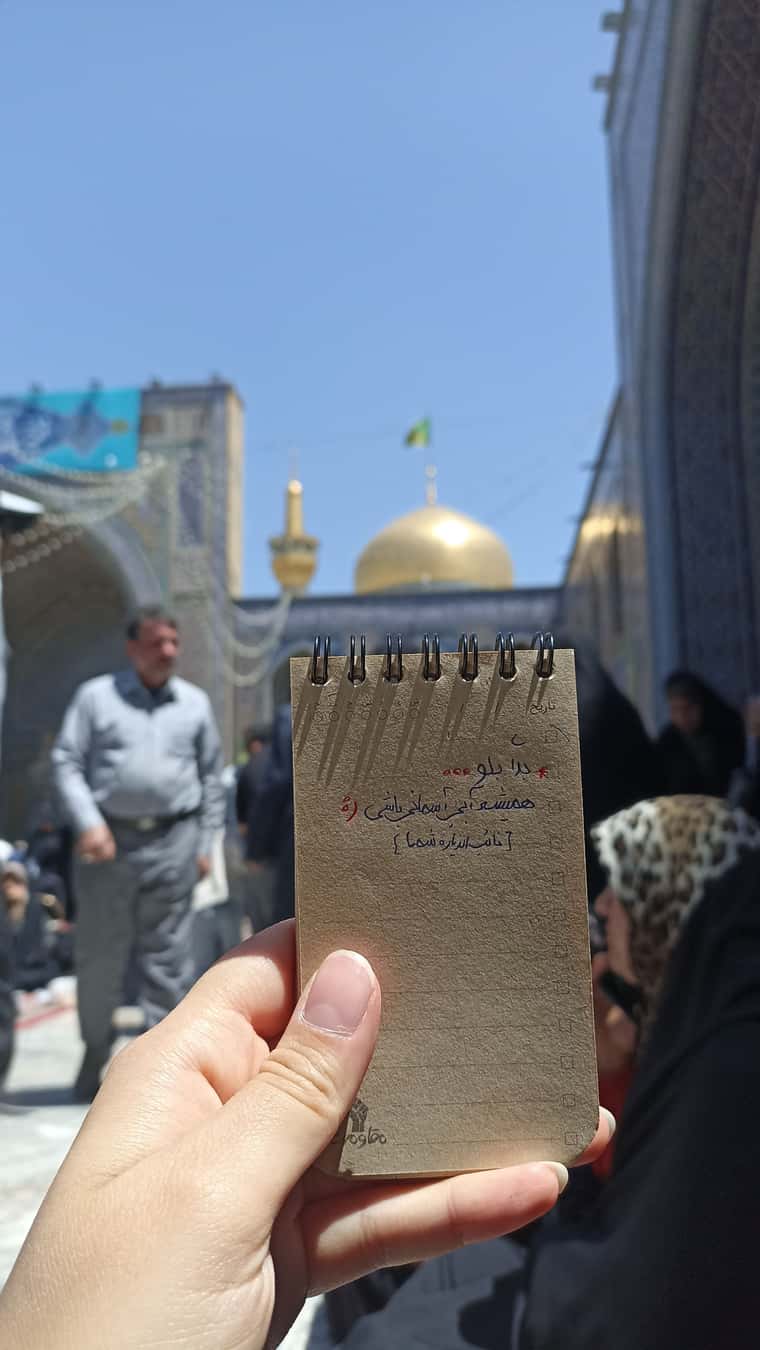 تاریخ
* بدا بلو ...
همیشه آبی آسمانی باشی
[نائب الزیاره شما]
مقاومت